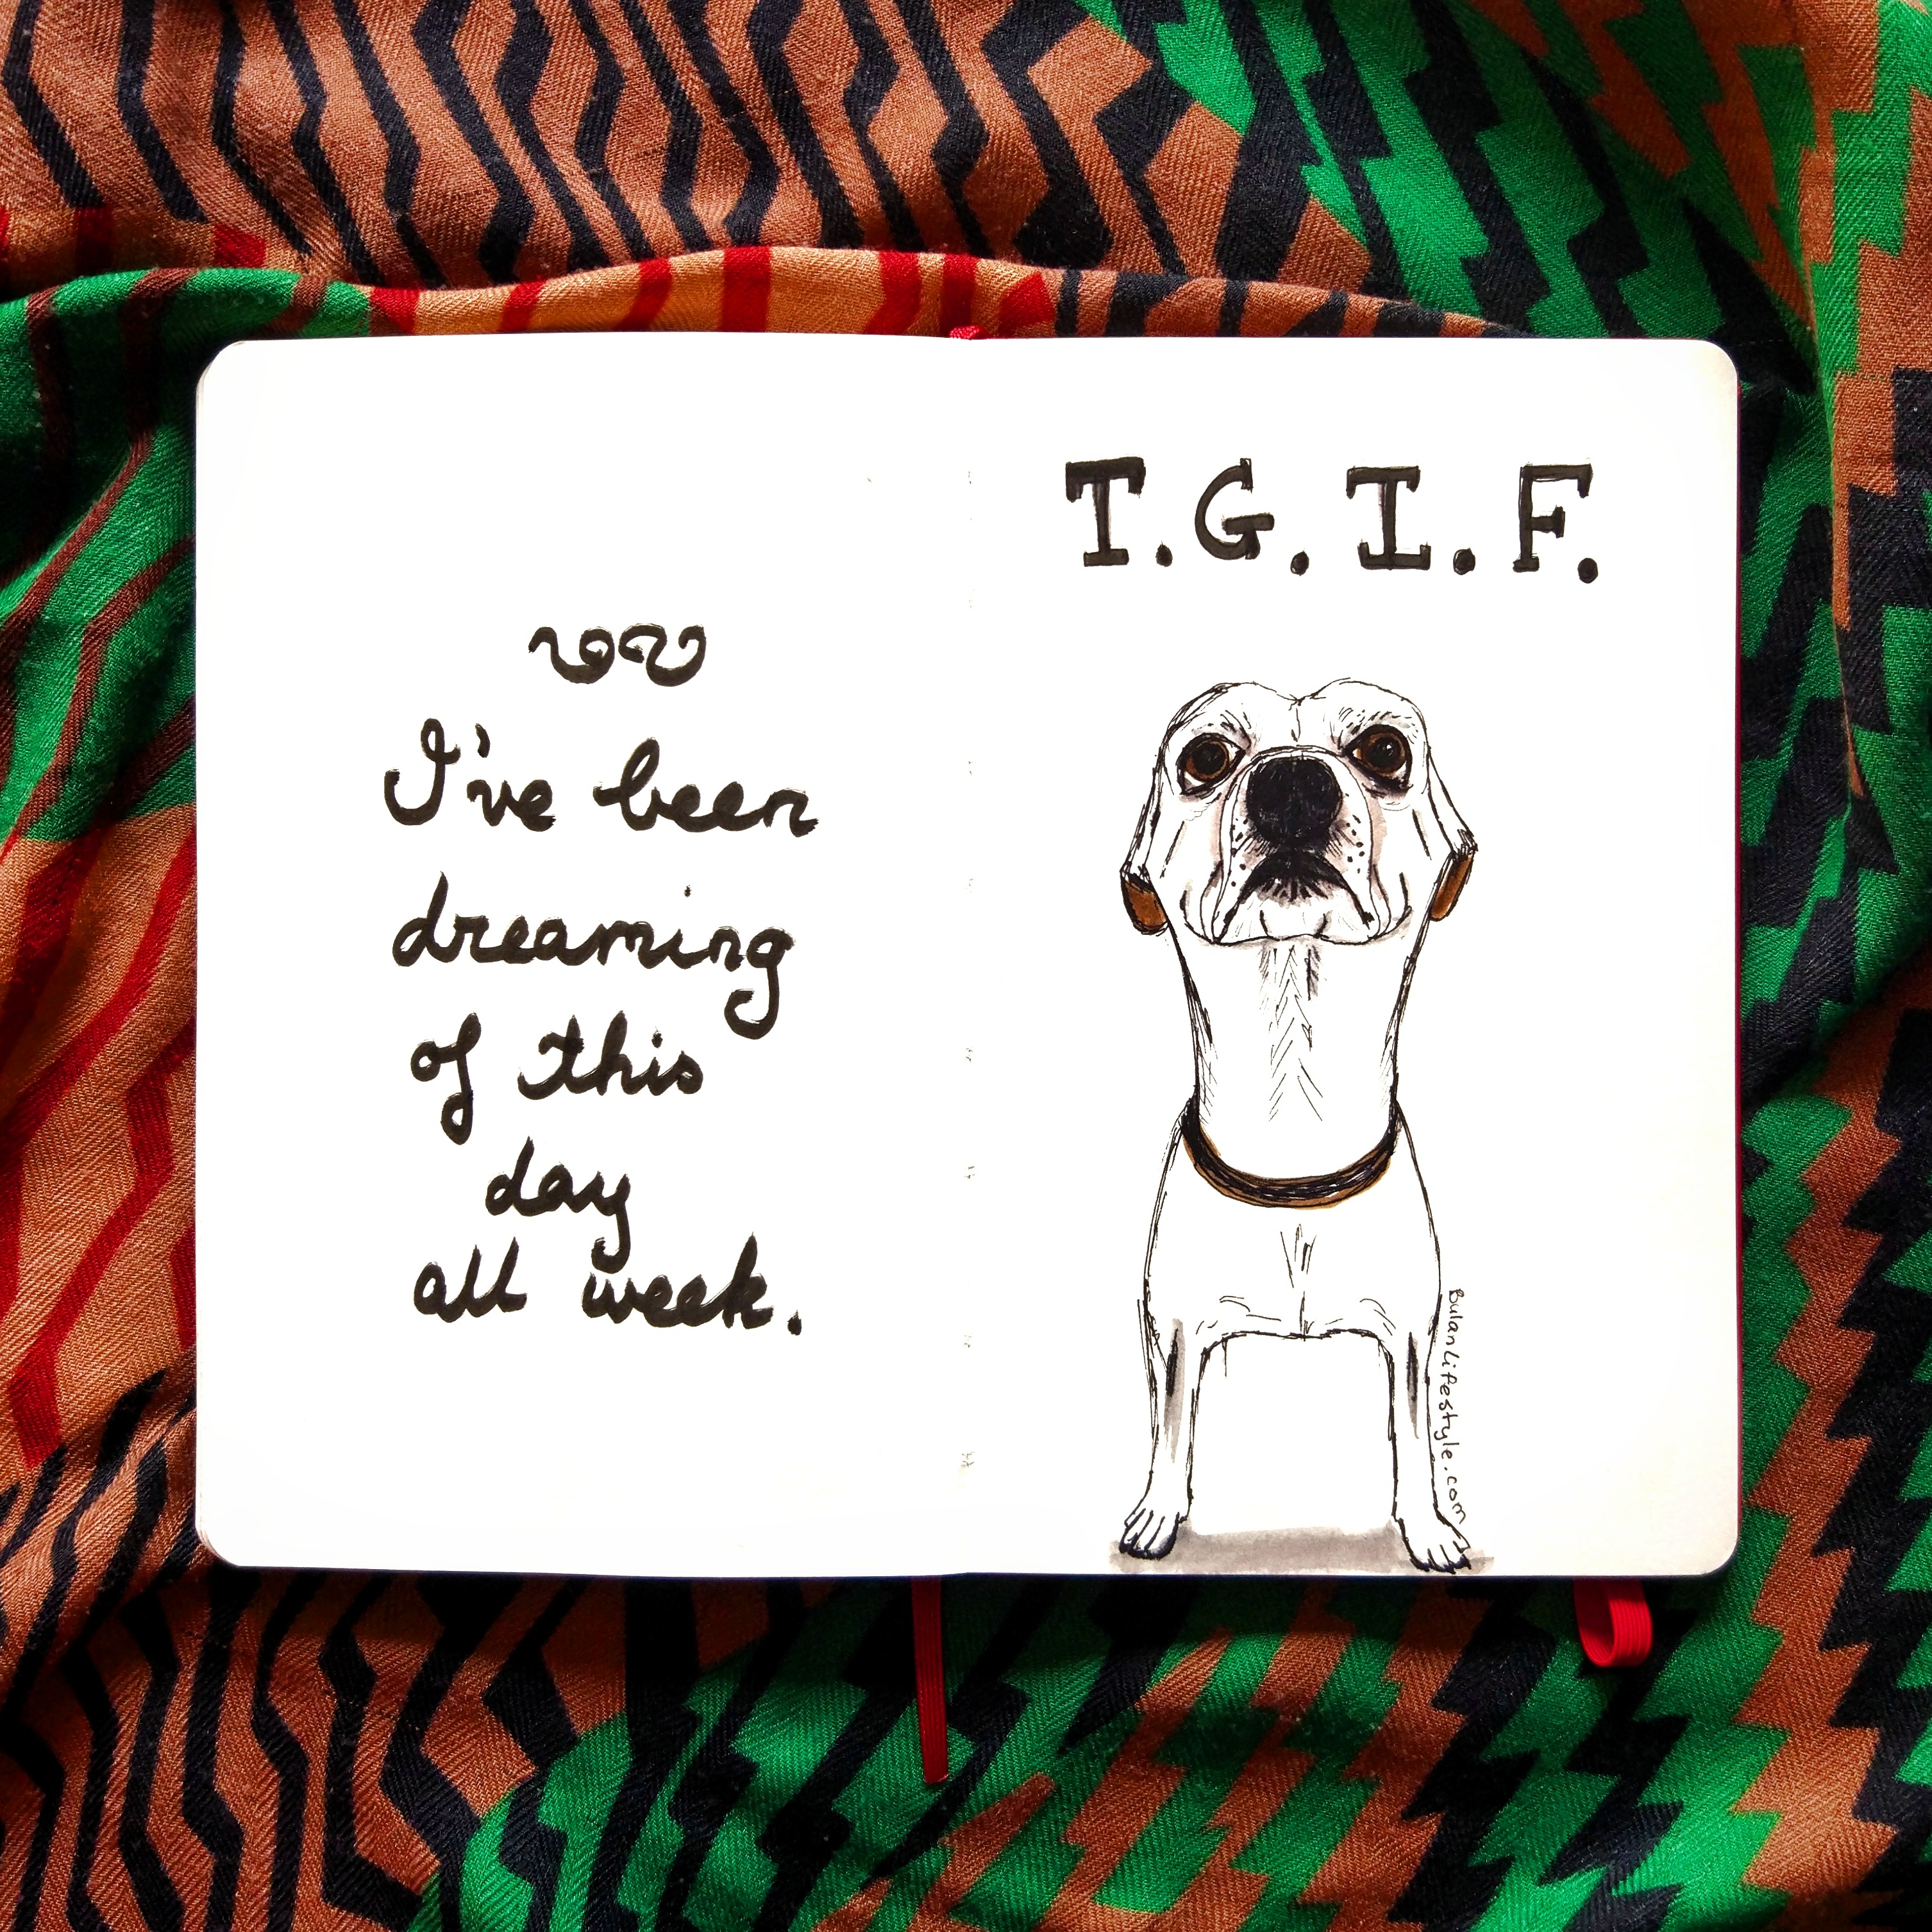 I've been
dreaming
of this
day
all week.
T.G.I.F.
Bulanlifestyle.com